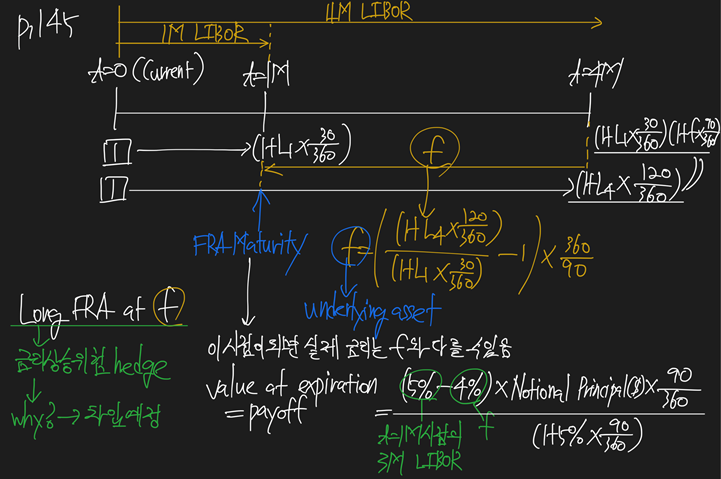 p.145
4M LIBOR
1M LIBOR
t=0 (Current)
t=1M
t=4M
1
(1+L1×30/360)
f
(1+L1×30/360)(1+f×90/360)
1
(1+L4×120/360)
FRA Maturity
f=((1+L4×120/360)/(1+L1×30/360) -1)×360/90
underlying asset
Long FRA at f
금리상승위험 hedge
why? → 차입예정
이 시점이 되면 실제 금리는 f와 다를 수 있음
value at expiration
=payoff
= (5%-4%)×Notional Principal($)×90/360
(1+5%×90/360)
t=1M시점의
3M LIBOR
f